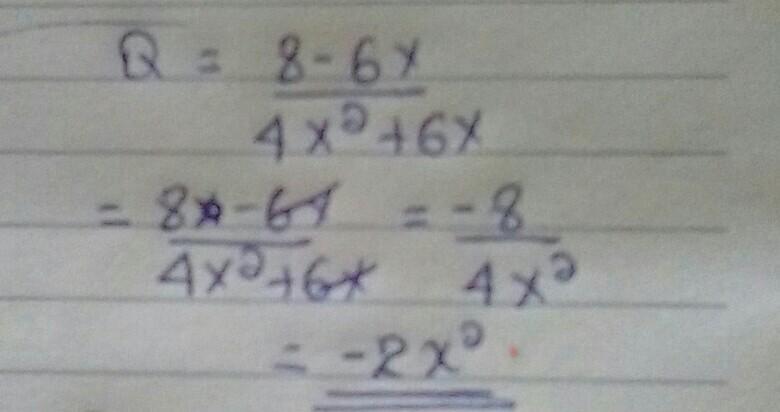 Q = 8 - 6x / 4x² + 6x
= 8x - 6x / 4x² + 6x = -8 / 4x²
= -2x²